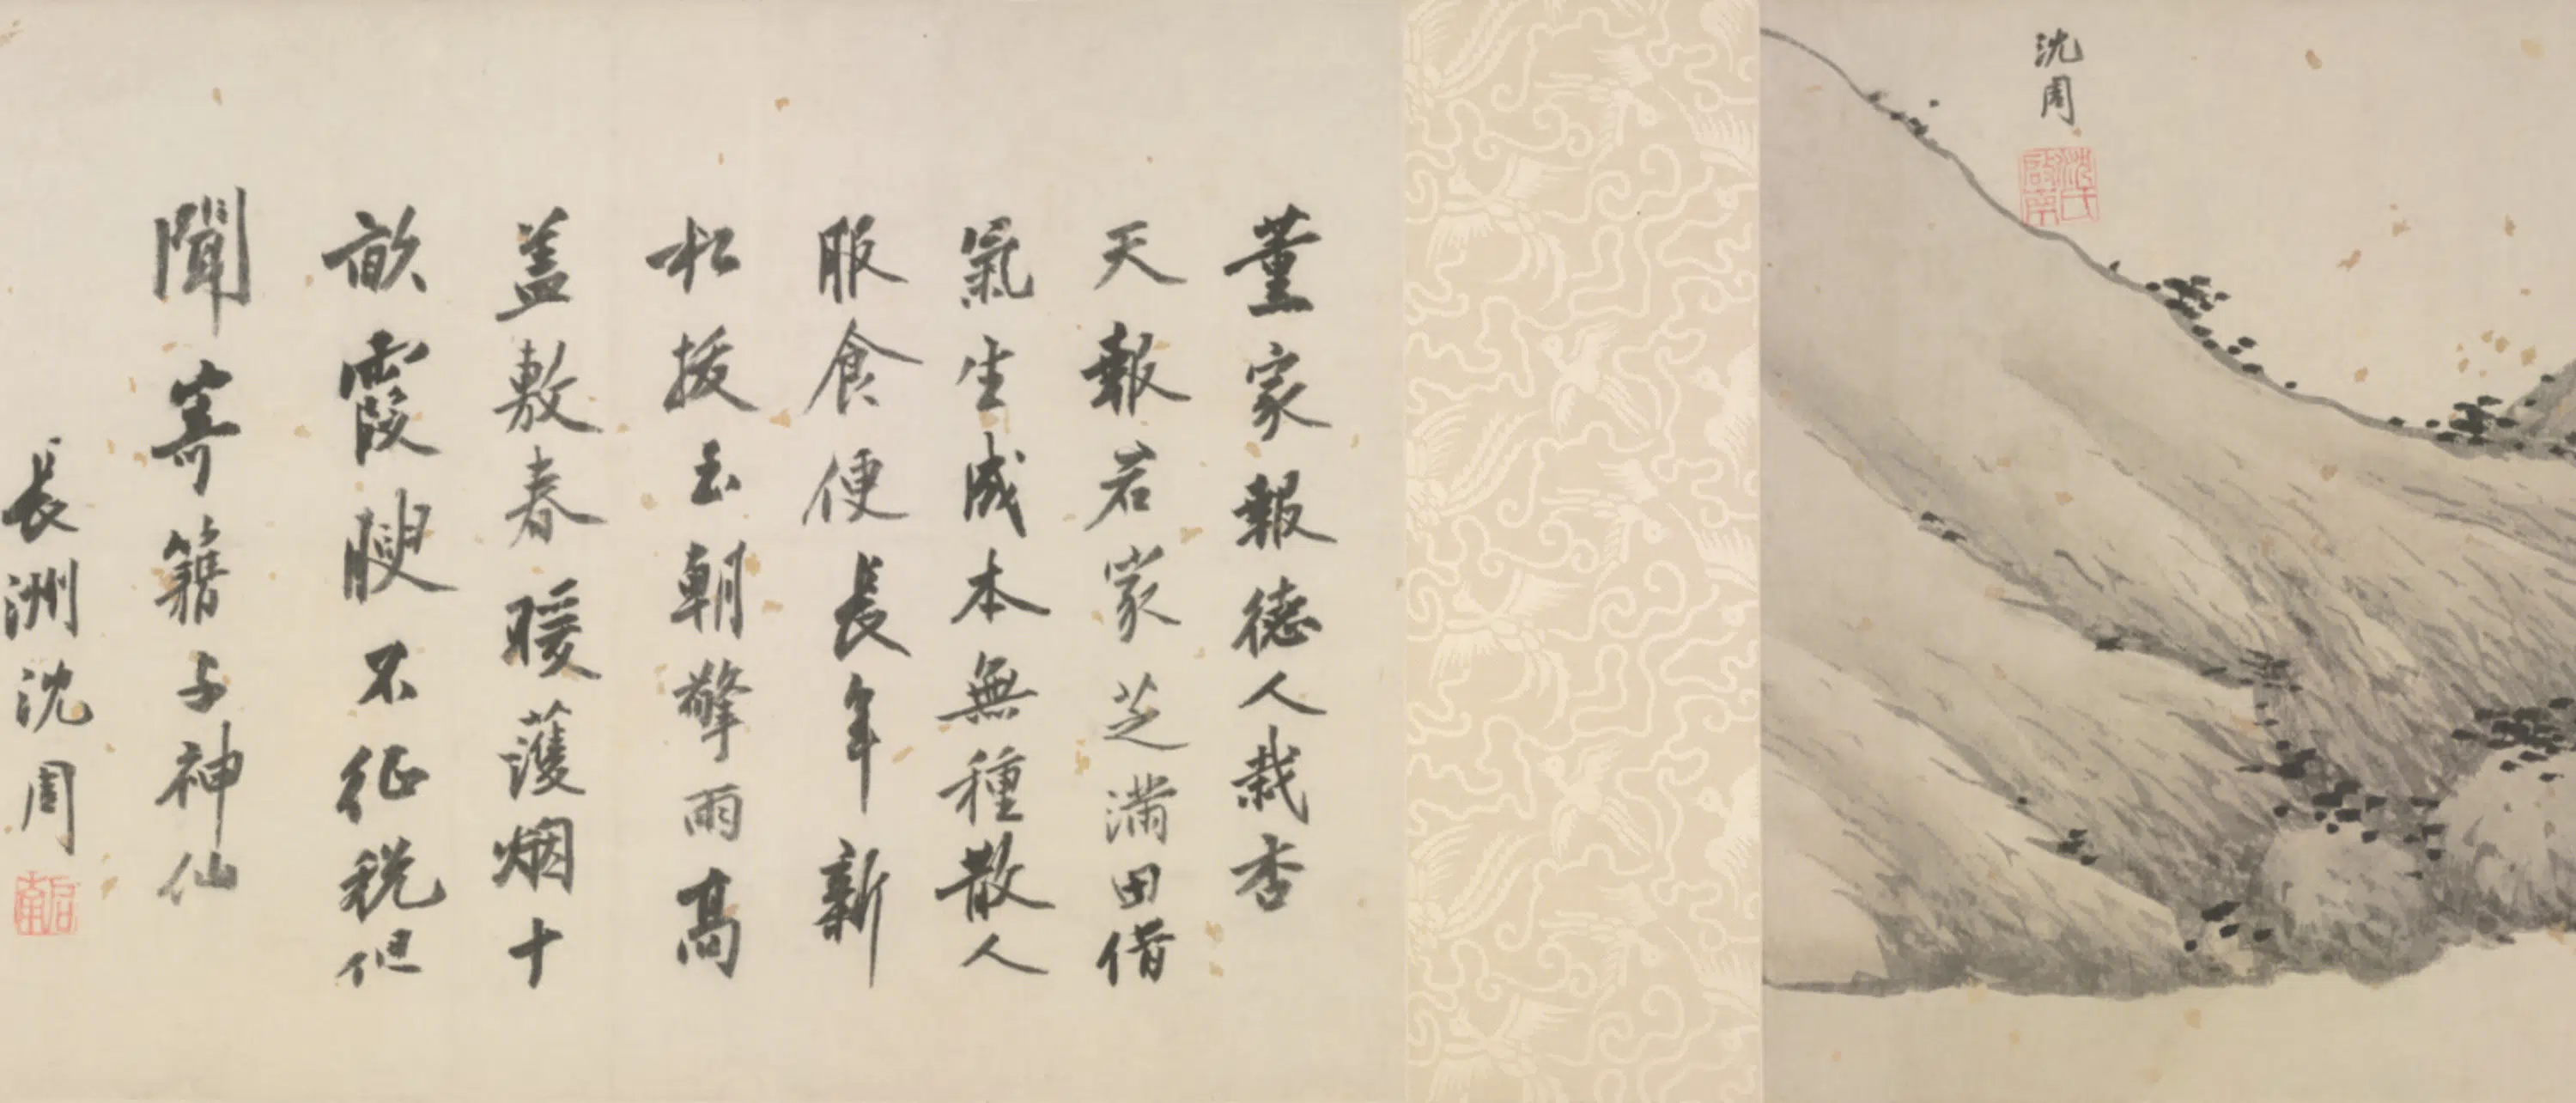 沈周
沈氏啟南
董家報德人栽杏
天報君家芝滿田借
氣生成本無種散人
服食便長年新
松拔玉朝擎雨高
蓋敷春暖護烟十
畝霞腴不征稅但
聞寄籍與神仙
長洲沈周
啟南